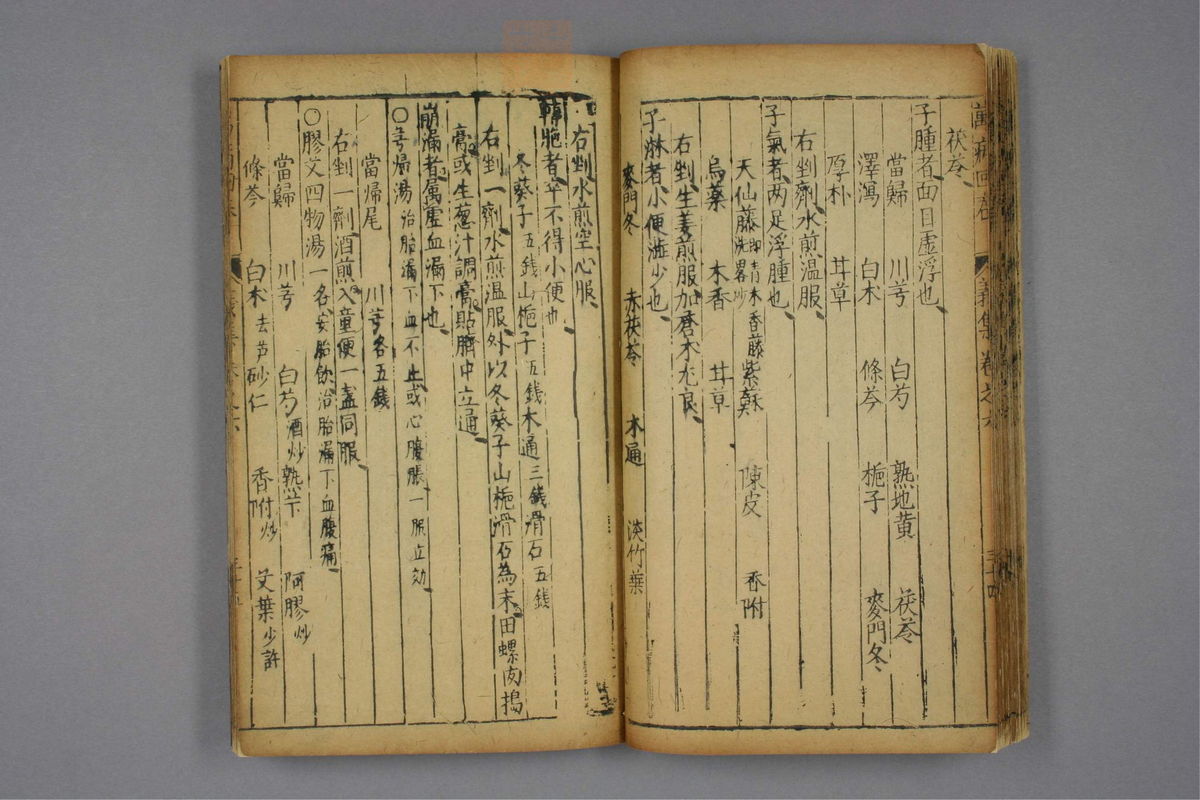 萬病回春
義集 卷之六
三十四
茯苓
子腫者面目虛浮也
當歸 川芎 白芍 熟地黄 茯苓
澤瀉 白术 條芩 梔子 麥門冬
厚朴 甘草
右剉劑水煎溫服
子氣者两足浮腫也
天仙藤即青木香藤洗畧炒 紫蘇 陳皮 香附
烏藥 木香 甘草
右剉生姜煎服加蒼术尤良
子淋者小便澁少也
麥門冬 赤茯苓 木通 淡竹葉
右剉水煎空心服
轉胞者卒不得小便也
冬葵子五錢山梔子五錢木通三錢滑石五錢
右剉一劑水煎溫服外以冬葵子山梔滑石為末田螺肉搗
膏或生葱汁調膏貼臍中立通
崩漏者属虛血漏下也
〇芎歸湯 治胎漏下血不止或心腹脹一服立効
當歸尾 川芎各五錢
右剉一劑酒煎入童便一盞同服
〇膠艾四物湯 一名安胎飲治胎漏下血腹痛
當歸 川芎 白芍酒炒 熟芐 阿膠炒
條芩 白术去芦 砂仁 香附炒 艾葉少許